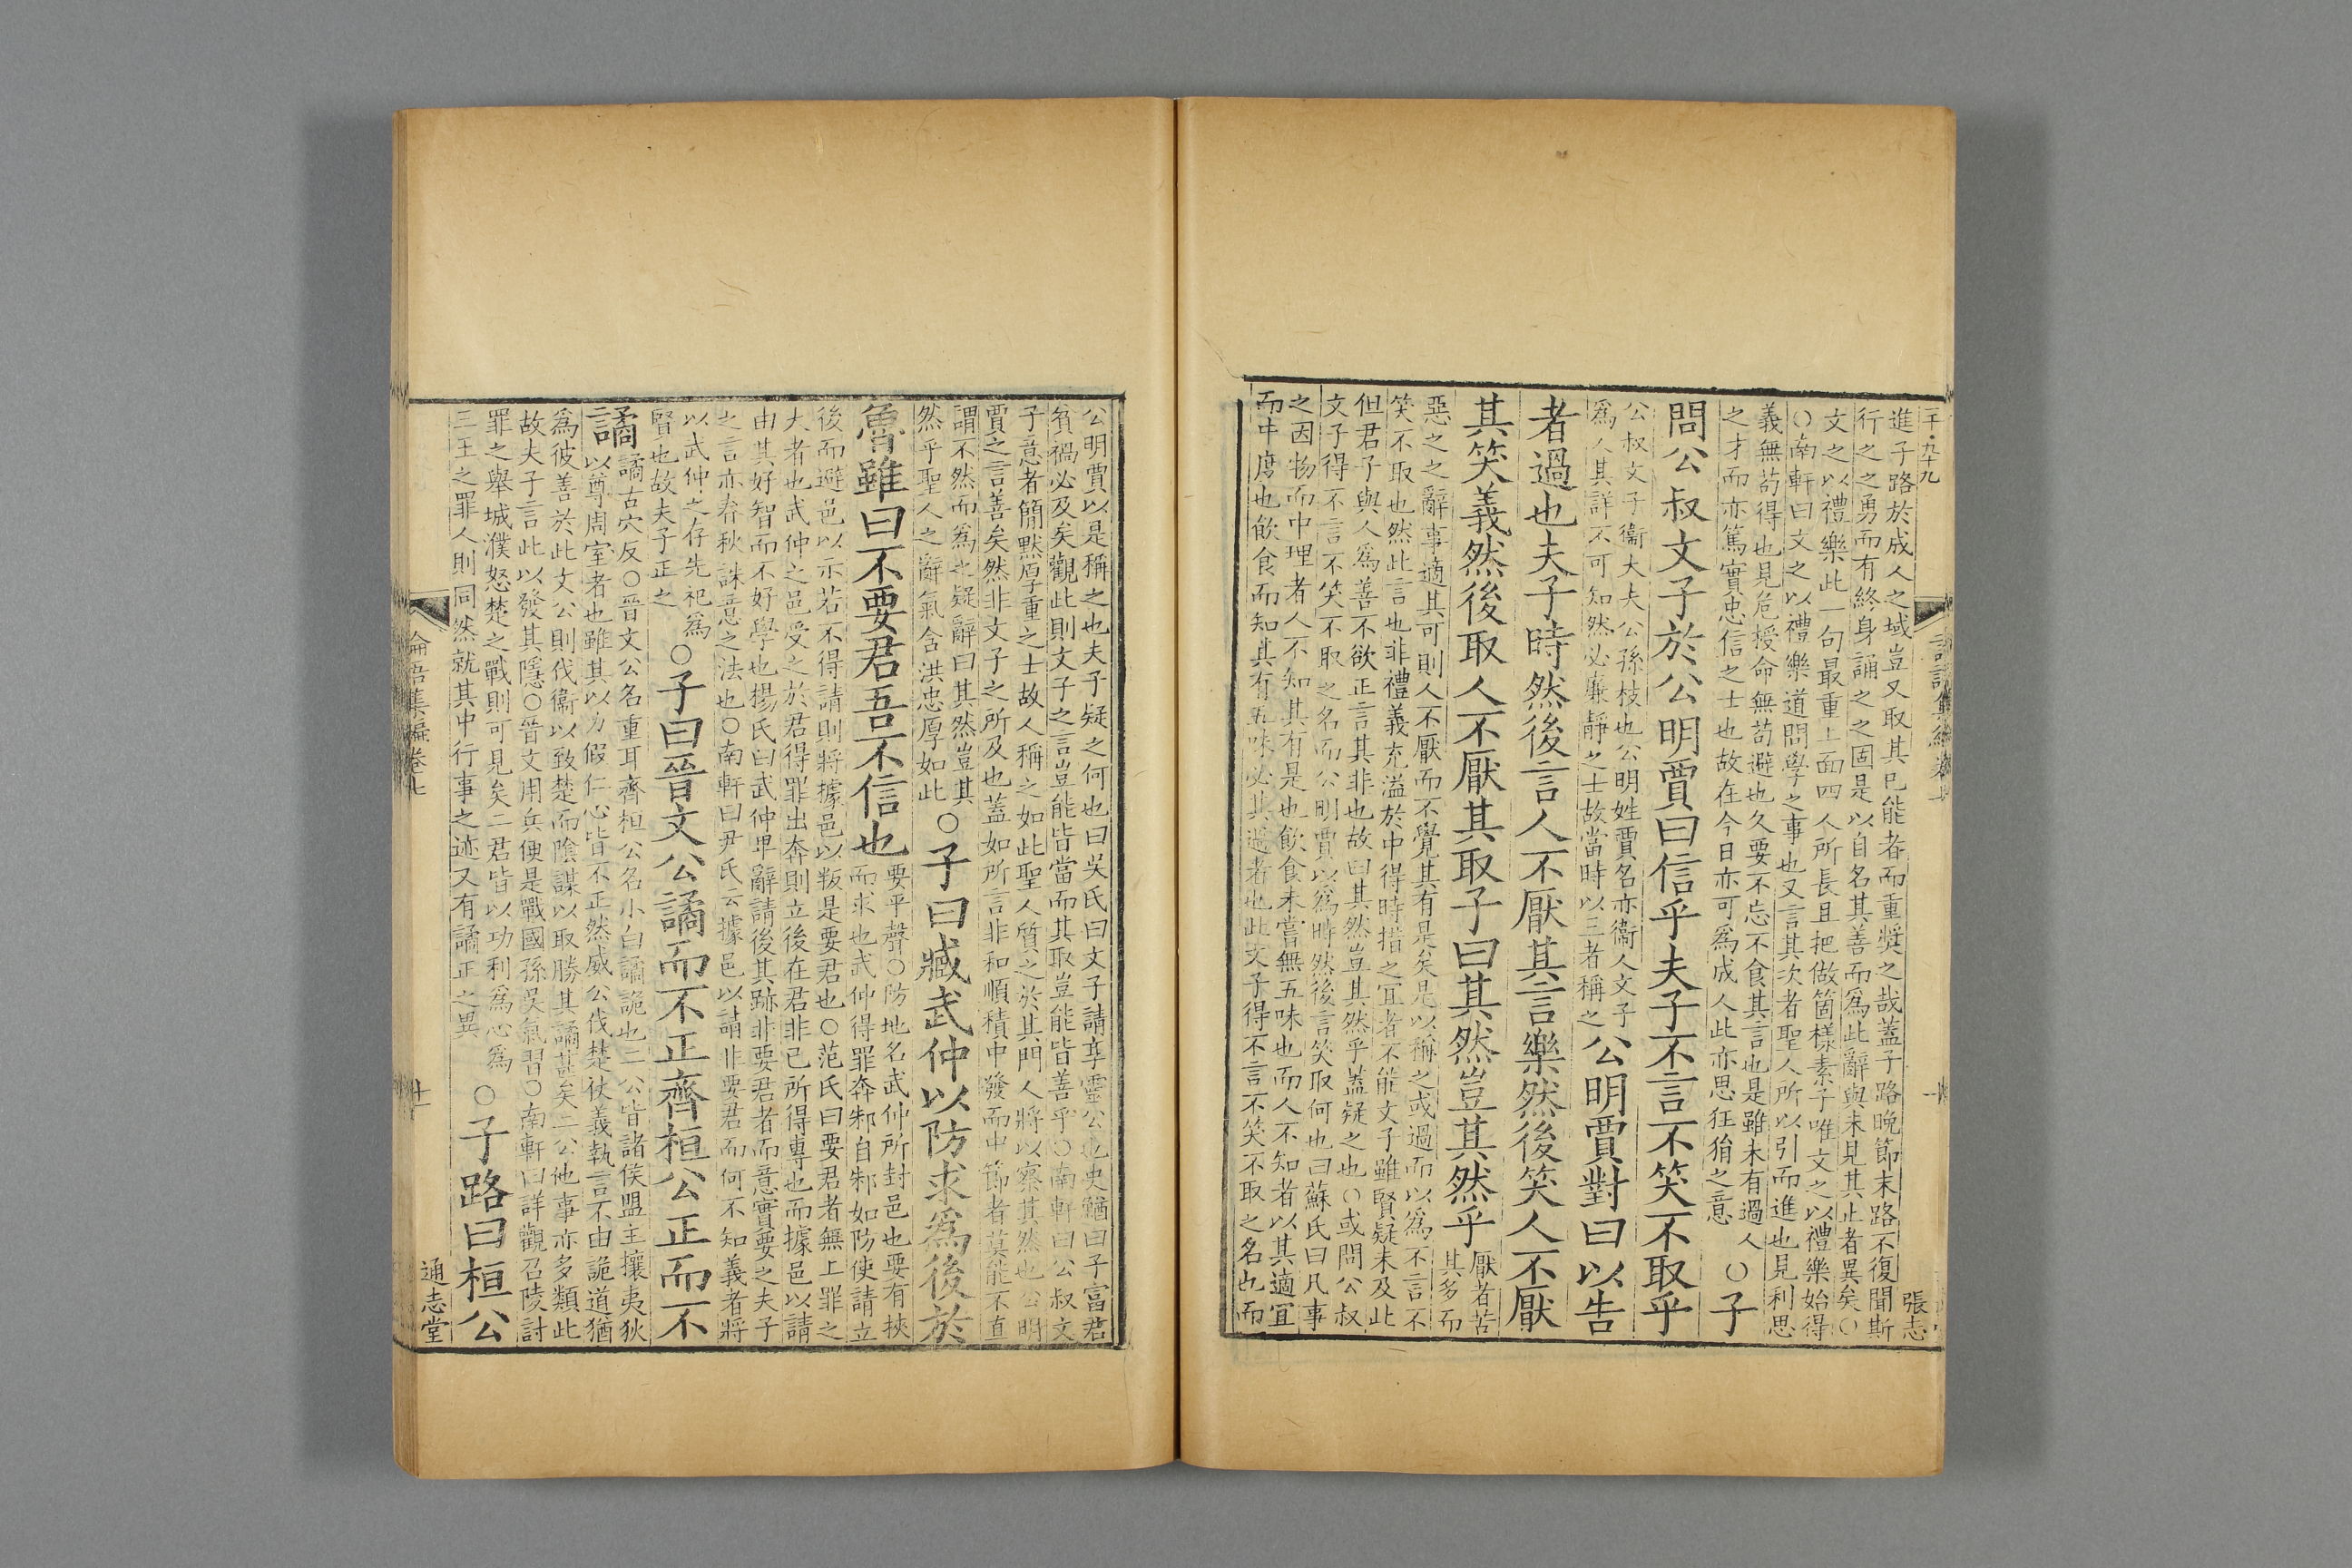 進子路於成人之域豈又取其已能者而重獎之哉蓋子路晚節末路不復聞斯
行之之勇而有終身誦之之固是以自名其善而爲此辭與未見其止者異矣○
文之以禮樂此一句最重上面四人所長且把做箇樣素子唯文之以禮樂始得
○南軒曰文之以禮樂道問學之事也又言其次者聖人所以引而進也見利思
義無苟得也見危授命無苟避也久要不忘不食其言也是雖未有過人
之才而亦篤實忠信之士也故在今日亦可爲成人此亦思狂狷之意
○子
問公叔文子於公明賈曰信乎夫子不言不笑不取乎
公叔文子衞大夫公孫枝也公明姓賈名亦衞人文子
爲人其詳不可知然必廉靜之士故當時以三者稱之
公明賈對曰以告
者過也夫子時然後言人不厭其言樂然後笑人不厭
其笑義然後取人不厭其取子曰其然豈其然乎
厭者苦
其多而
惡之之辭事適其可則人不厭而不覺其有是矣是以稱之或過而以爲不言不
笑不取也然此言也非禮義充溢於中得時措之宜者不能文子雖賢疑未及此
但君子與人爲善不欲正言其非也故曰其然豈其然乎蓋疑之也○或問公叔
文子得不言不笑不取之名而公明賈以爲時然後言笑取何也曰蘇氏曰凡事
之因物而中理者人不知其有是也飲食未嘗無五味也而人不知者以其適宜
而中度也飲食而知其有五味必其過者也此文子得不言不笑不取之名也而
公明賈以是稱之也夫子疑之何也曰吳氏曰文子請享靈公也史鰌曰子富君
貧禍必及矣觀此則文子之言豈能皆當而其取豈能皆善乎○南軒曰公叔文
子意者簡默厚重之士故人稱之如此聖人質之於其門人將以察其然也公明
賈之言善矣然非文子之所及也蓋如所言非和順積中發而中節者莫能不直
謂不然而爲之疑辭曰其然豈其
然乎聖人之辭氣含洪忠厚如此
○子曰臧武仲以防求爲後於
魯雖曰不要君吾不信也
要平聲○防地名武仲所封邑也要有挾
而求也武仲得罪奔邾自邾如防使請立
後而避邑以示若不得請則將據邑以叛是要君也○范氏曰要君者無上罪之
大者也武仲之邑受之於君得罪出奔則立後在君非已所得專也而據邑以請
由其好智而不好學也楊氏曰武仲卑辭請後其跡非要君者而意實要之夫子
之言亦春秋誅意之法也○南軒曰尹氏云據邑以請非要君而何不知義者將
以武仲之存先祀爲
賢也故夫子正之
○子曰晉文公譎而不正齊桓公正而不
譎
譎古穴反○晉文公名重耳齊桓公名小白譎詭也二公皆諸侯盟主攘夷狄
以尊周室者也雖其以力假仁心皆不正然威公伐楚仗義執言不由詭道猶
爲彼善於此文公則伐衞以致楚而陰謀以取勝其譎甚矣二公他事亦多類此
故夫子言此以發其隱○晉文用兵便是戰國孫吳氣習○南軒曰詳觀召陵討
罪之舉城濮怒楚之戰則可見矣二君皆以功利爲心爲
三王之罪人則同然就其中行事之迹又有譎正之異
○子路曰桓公
論語集編卷七
十一
通志堂